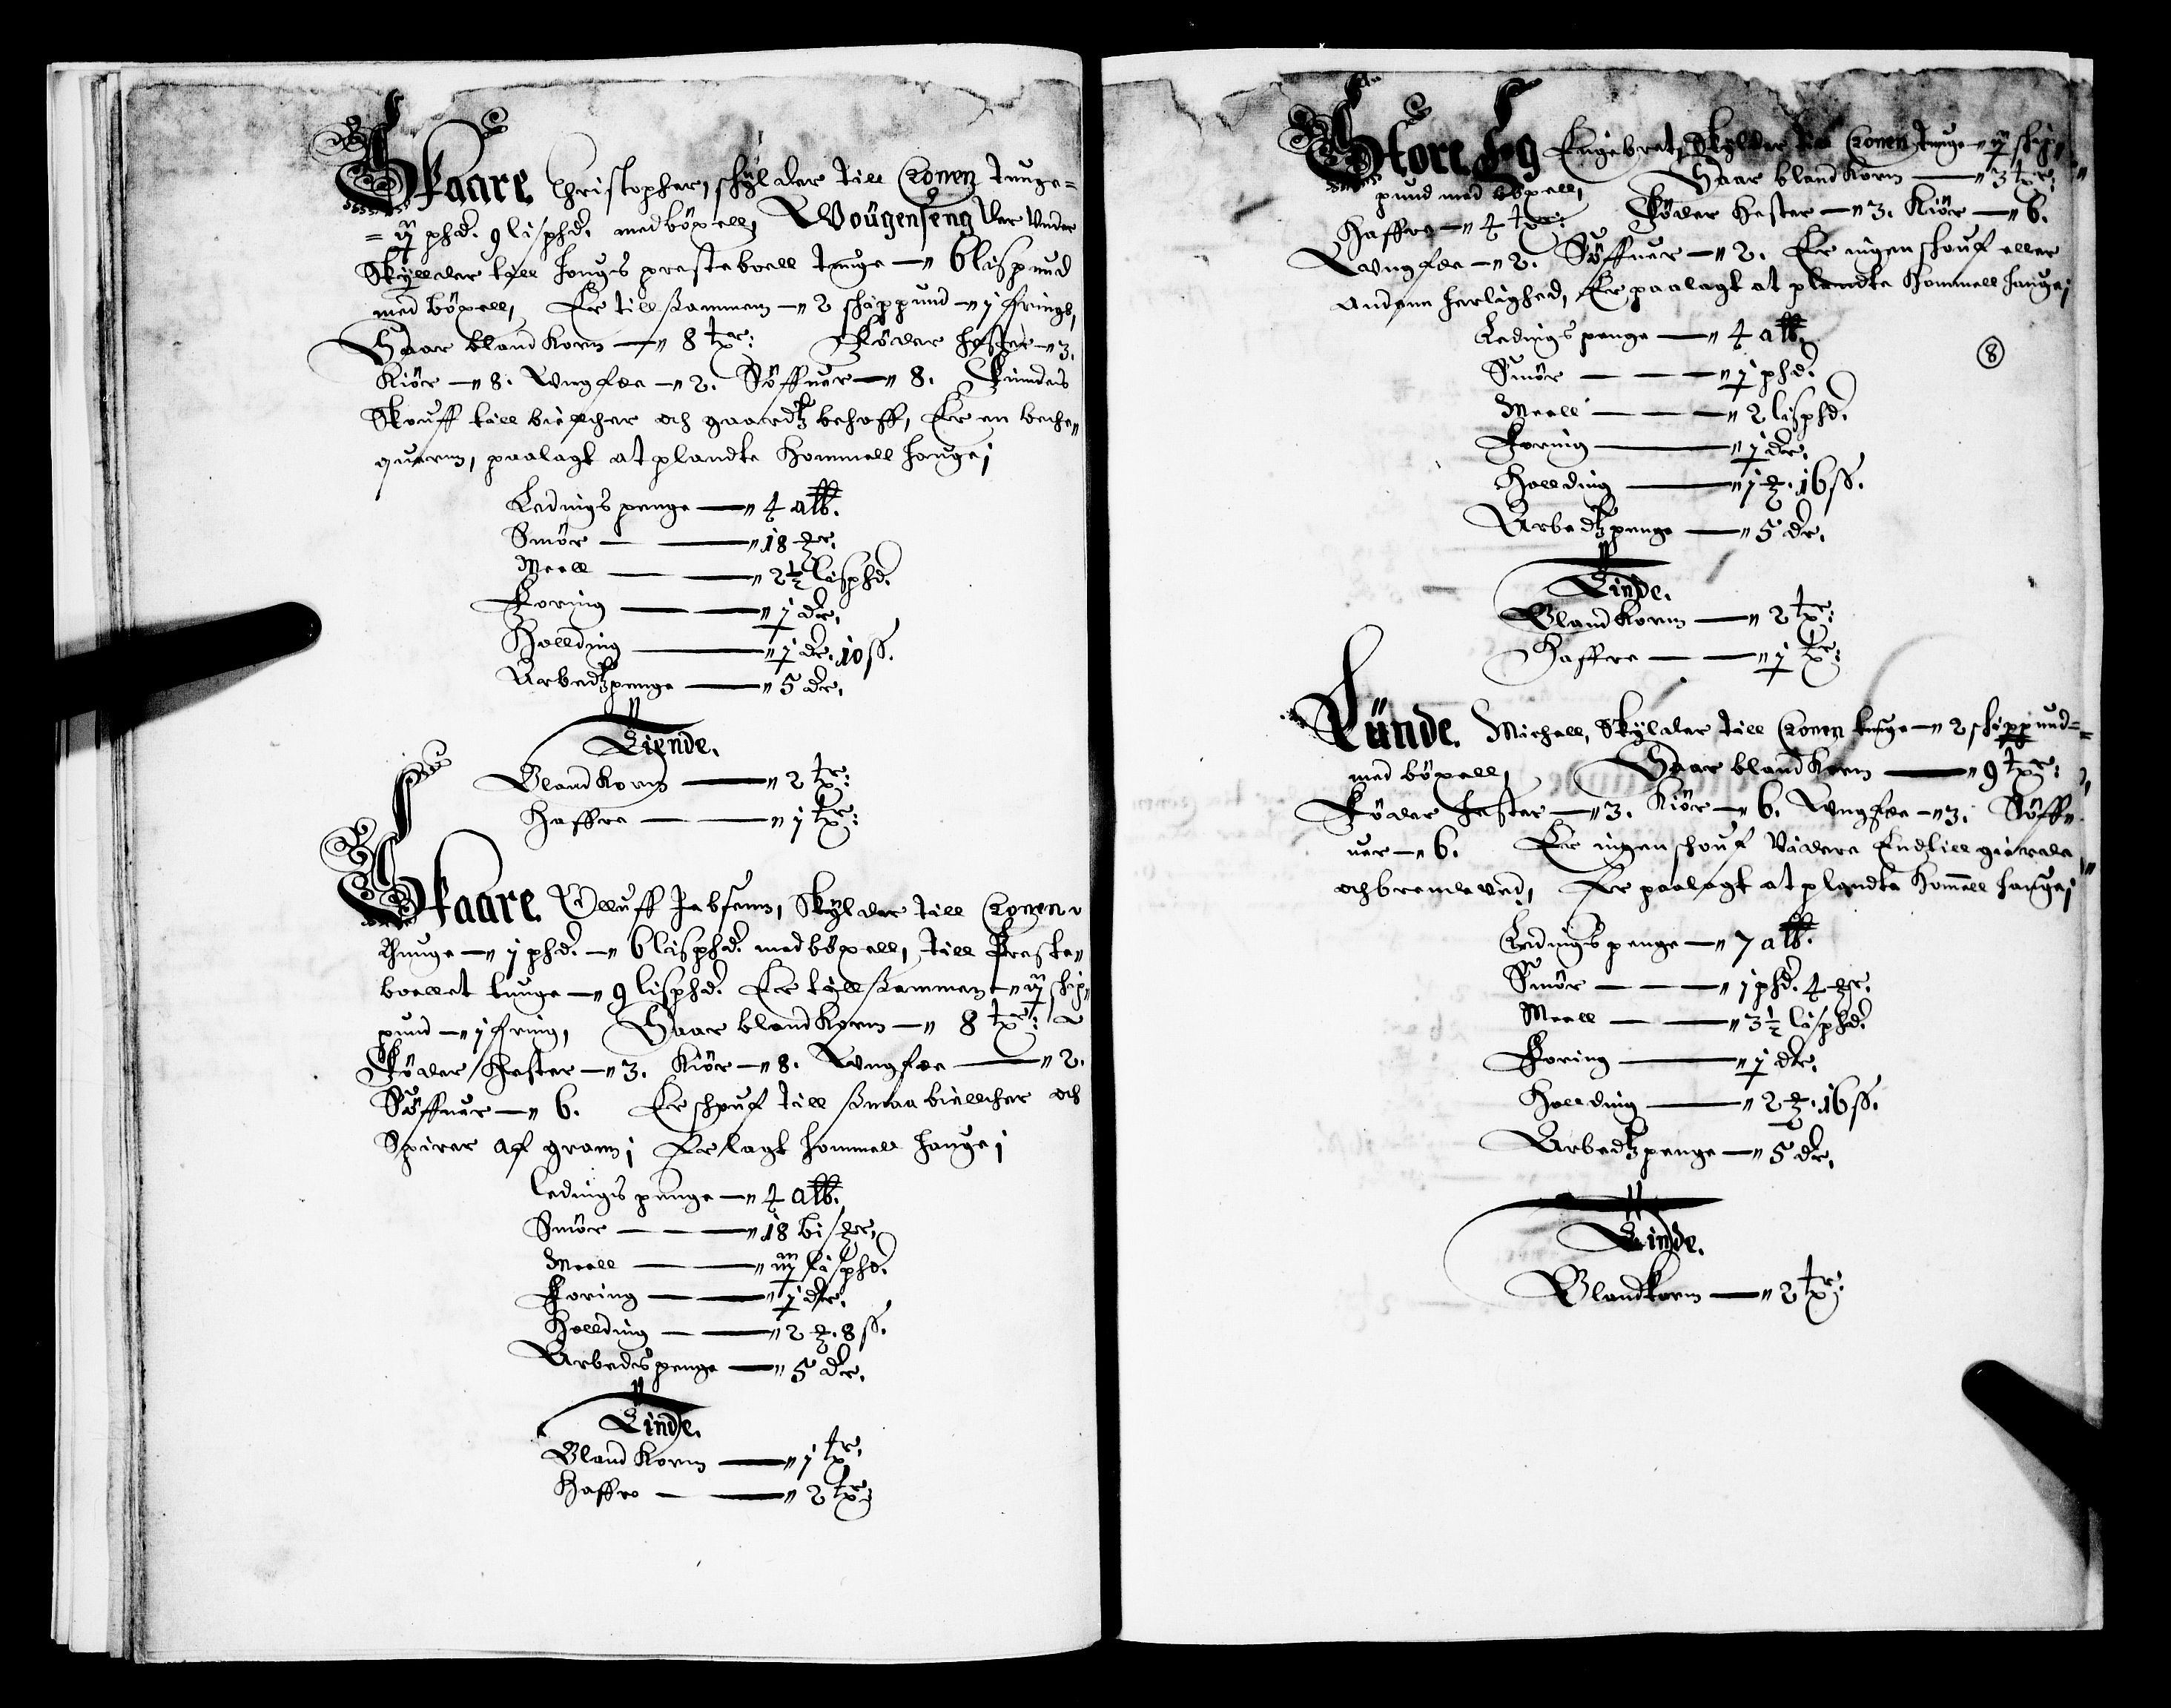 Skaare. Christopher, skylder till Cronen tunge=
= ij phd. 9 lisphd. med böxell, Wougenseng der under
skyllder till Hougs presteboell tunge — 6 lispund
med böxell, Er till sammen — 2 skippund — j fring,
Saar bland Korn — 8 tr: Föder Hester — 3.
Kiör — 8. Ungfæe — 2. Söffuer — 8. Findes
Skouff till bielcher och gaardtz behoff, Er en beche
quern, paalagt at plandte Hommell Hauge;
Ledings penge — 4 alb.
Smör — 18 mr.
Meell — 2½ lisphd.
Foring — j dr.
Hollding — j dr. 10 ss.
Arbedtzpenge — 5 dr.
Tiende.
Bland Korn — 2 tr:
Haffre — j tr:
Skaare. Olluff Jebsenn, Skylder till Cronen
thunge — j phd. — 6 lisphd. med böxell, till Preste
boellet tunge — 9 lisphd. Er till sammen — ij skip
pund — j fring, Saar bland Korn — 8 tr:
Föder Hester — 3. Kiör — 8. Ungfæe — 2.
Söffuer — 6. Er skouf till smaa biellcher och
Spirer af grann; Er lagt Hommell Hauge;
Ledings penge — 4 alb.
Smör — 18 bismr.
Meell — iij lisphd.
Foring — j dr.
Hollding — 2 mr. 8 ss.
Arbeds penge — 5 dr.
Tinde.
Bland Korn — j tr.
Haffre — 2 tr:
Store Eg Engebret, Skylder till Cronen tunge — ij skip
pund med böxell, Saar bland Korn — 3 tr:
Haffre — 4 tr: Föder Hester — 3. Kiör — 6.
Ungfæe — 2. Söffuer — 2. Er ingen skouf eller
anden herlighed, Er paalagt at plandte Hommell Hauge;
8
Ledings penge — 4 alb.
Smör — j phd.
Meell — 2 lisphd.
Foring — j dr.
Hollding — j mr. 16 ss.
Arbedtzpenge — 5 dr.
Tinde.
Bland Korn — 2 tr:
Haffre — j tr:
Lünde. Michell, Skylder till Cronen tunge — 2 skippund=
med böxell, Saar bland Korn — 9 tr:
Föder Hester — 3. Kiör — 6. Ungfæe — 3. Söff
uer — 6. Er ingen skouf videre End till gierde
och brendeved, Er paalagt at plandte Homell Hauge;
Ledings penge — 7 alb.
Smör — j phd. 4 mr.
Meell — 3½ lisphd.
Foring — j dr.
Hollding — 2 mr. 16 ss.
Arbedtzpenge — 5 dr.
Tinde.
Blandkorn — 2 tr: